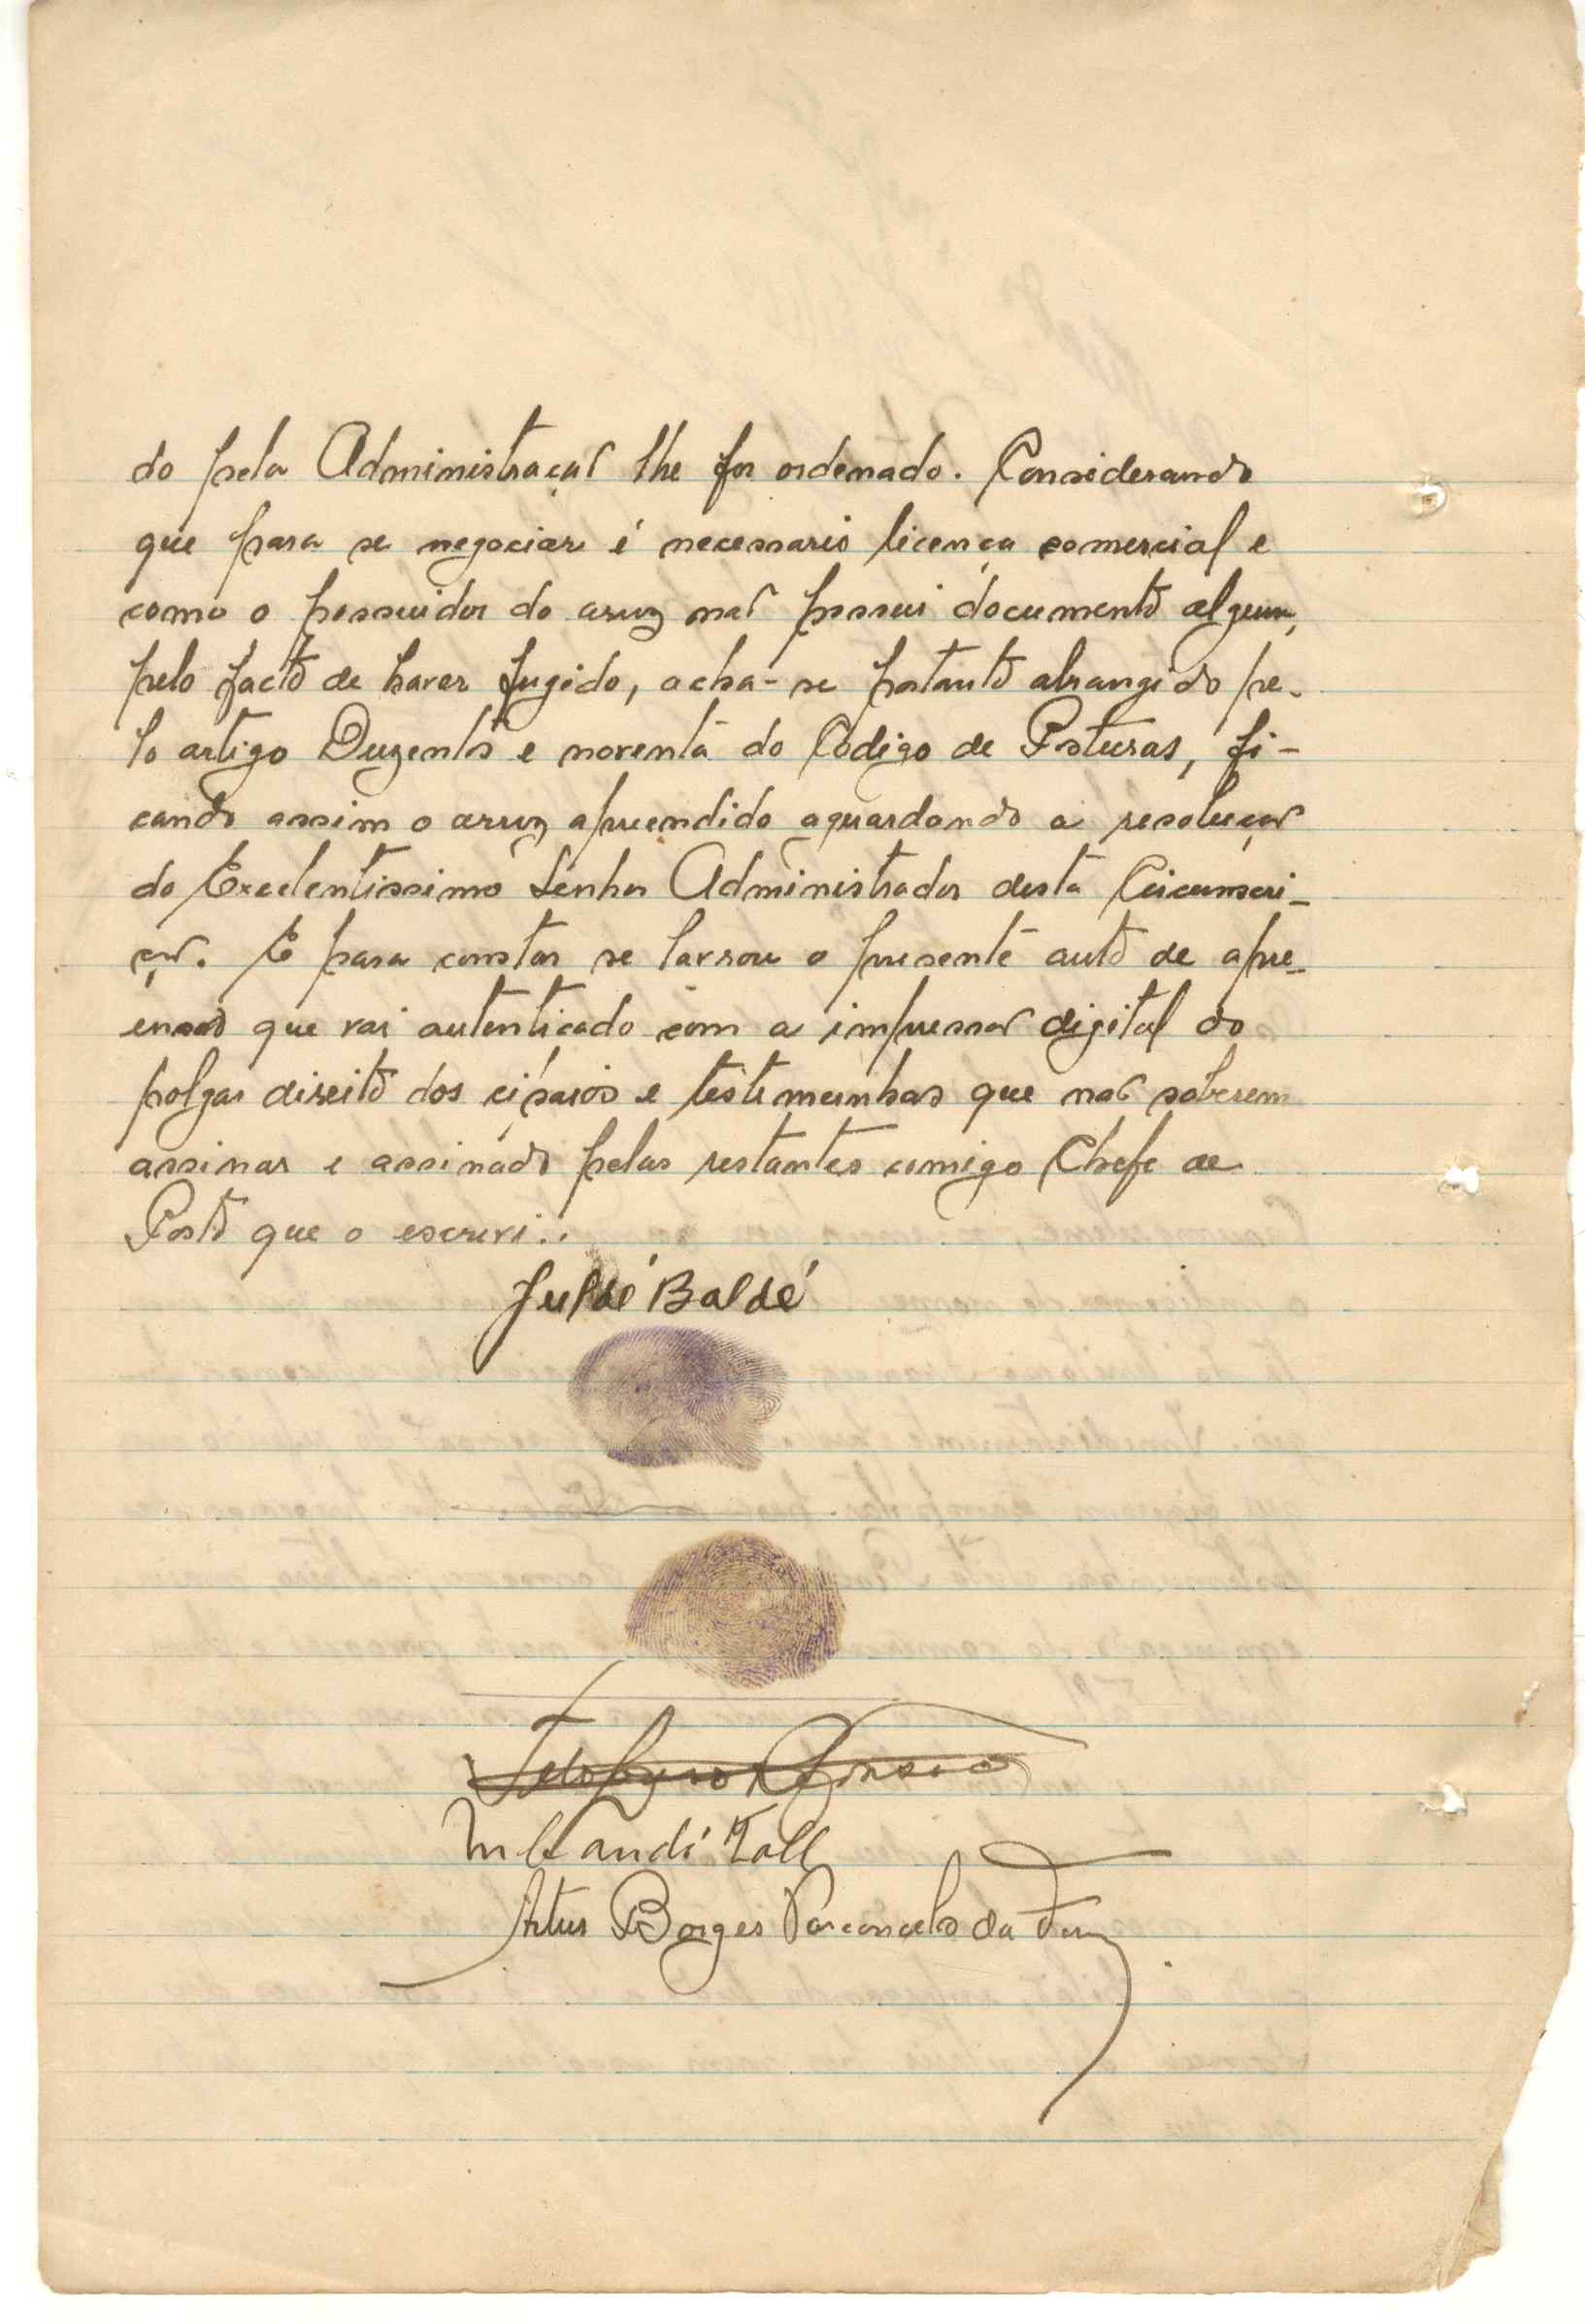 do pela Administração lhe for ordenado. Considerando
que para se negociar é necessario licença comercial e
como o possuidor do arroz não possui documento algum,
pelo facto de haver fugido, acha-se portanto abrangido pe-
lo artigo Duzentos e noventa do Codigo de Posturas, fi-
cando assim o arroz apreendido aguardando a resolução
do Excelentissimo Senhor Administrador desta Circunscri-
ção. E para constar se lavrou o presente auto de apre-
ensão que vai autenticado com a impressão digital do
polgar direito dos cipaios e testemunhas que não saberem
assinar e assinado pelas restantes comigo Chefe de
Posto que o escrevi..
Juldé Baldé
Afonso
Candi Tall
Artur Borges Vasconcelos da